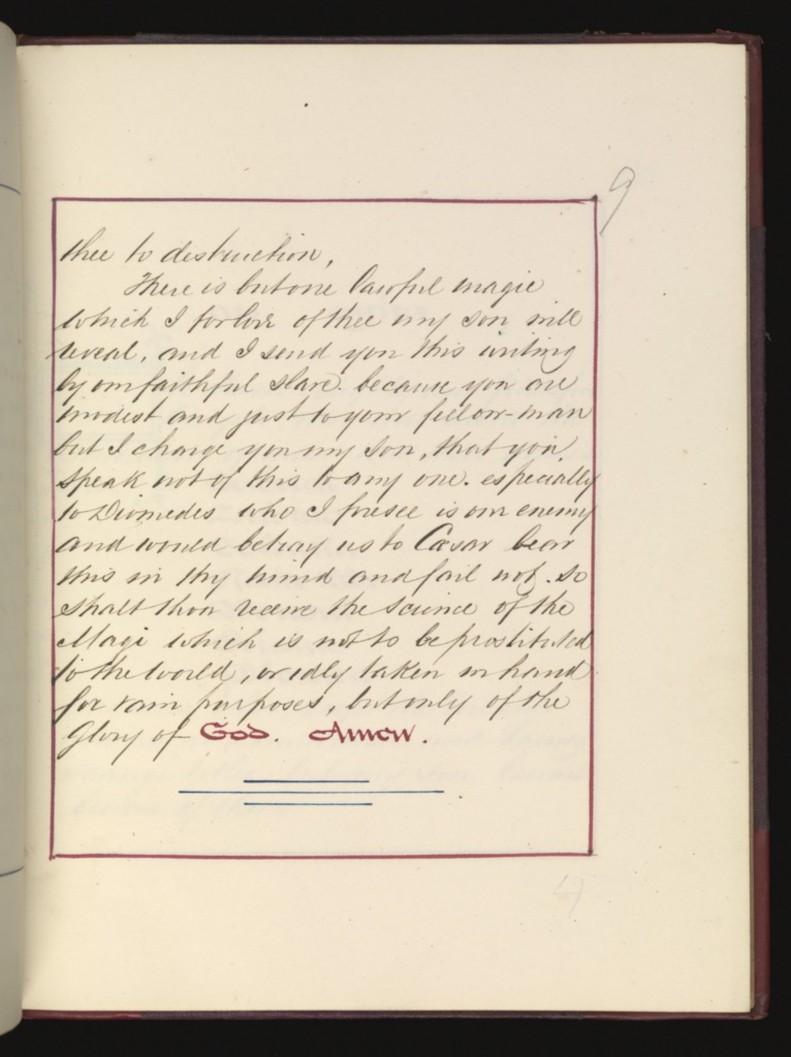 9
thee to destruction,
There is but one lawful magic
which I for love of thee my son will
reveal, and I send you this writing
by our faithful slave. because you are
modest and just to your fellow-man
but I charge you my son, that you
speak not of this to any one. especially
to Diomedes who I foresee is our enemy
and would betray us to Cæsar bear
this in thy mind and fail not. so
shalt thou receive the science of the
Magi which is not to be prostituted
to the world, or idly taken in hand
for vain purposes, but only of the
Glory of God. Amen.
4